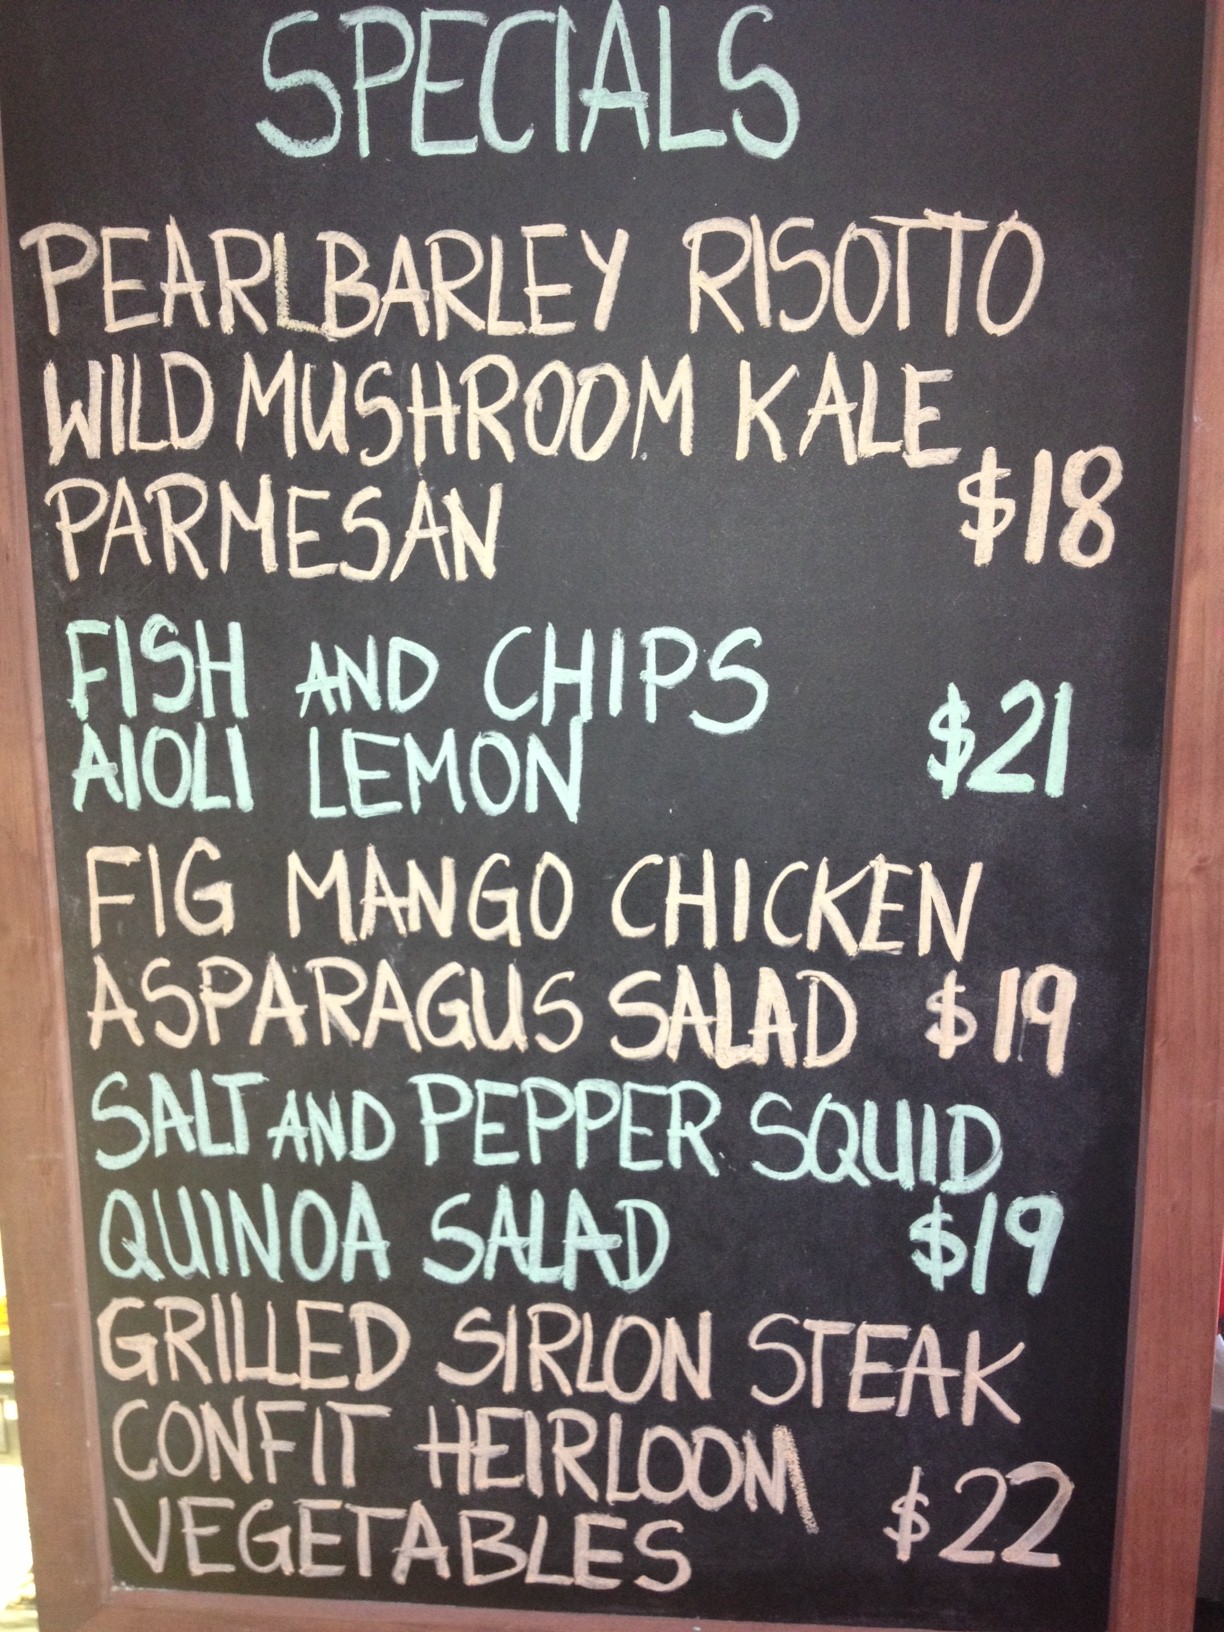 SPECIALS
PEARLBARLEY RISOTTO
WILD MUSHROOM KALE
PARMESAN $18
FISH AND CHIPS
AIOLI LEMON $21
FIG MANGO CHICKEN
ASPARAGUS SALAD $19
SALT AND PEPPER SQUID
QUINOA SALAD $19
GRILLED SIRLON STEAK
CONFIT HEIRLOOM
VEGETABLES $22